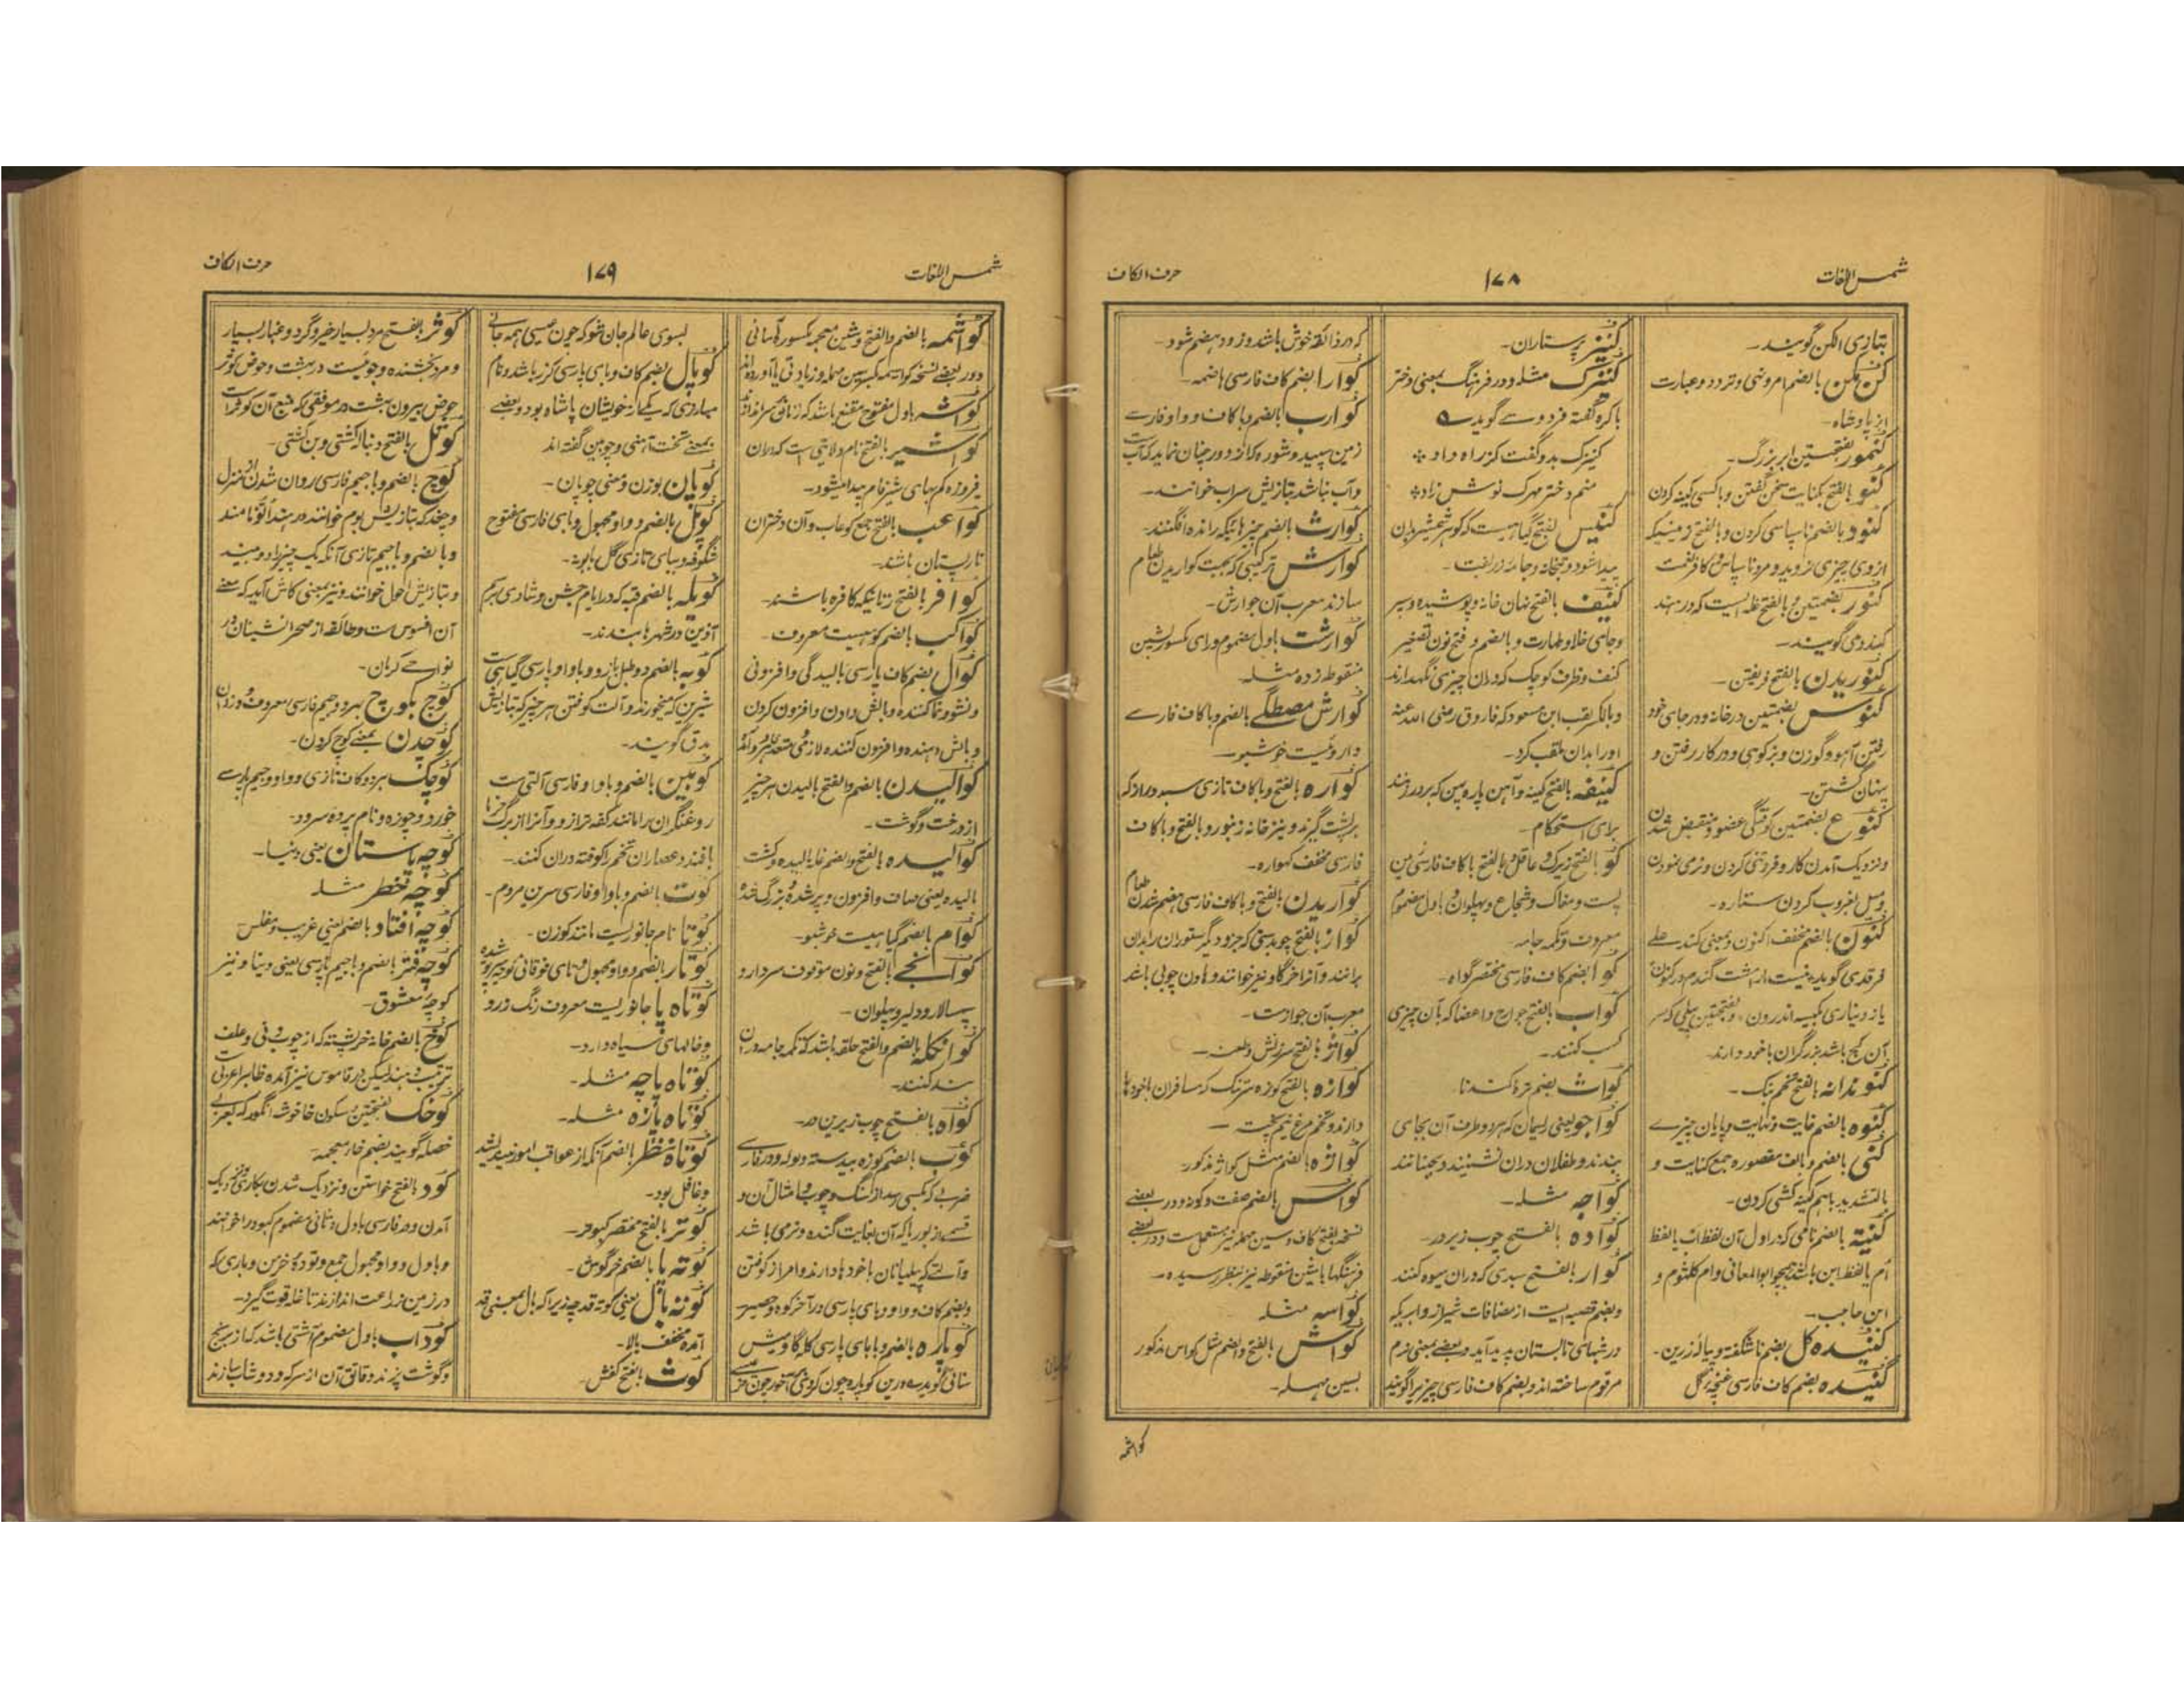 شمس اللغات
۱۷۸
حرف الکاف
بتازی الکن گویند
کن مکن بالضم امر و نهی و تردد و عبارت
از پادشاه
کنمور بفتحتین ابر بزرگ
کنو بالفتح بکنایت سخن گفتن و با کسی کینه کردن
کنود بالضم ناسپاسی کردن و بالفتح زمینیکه
ازوی چیزی نروید و مرد ناسپاس و کافر نعمت
کنور بضمتین و بالفتح غله ایست که در هند
کندوی گویند
کنوریدن بالفتح فریفتن
کنوس بضمتین در خانه و در جای خود
رفتن آهو و گوزن و بز کوهی و در کار رفتن و
پنهان گشتن
کنوع بضمتین کوفتگی عضو و منقبض شدن
و نزدیک آمدن کار و فروتنی کردن و نرمی نمودن
و میل بغروب کردن ستاره
کنون بالضم مخفف اکنون و بمعنی کندے
آن کج باشد بزرگران با خود دارند
کنوندانه بالفتح تخم بنگ
کنوه بالضم غایت و نهایت و پایان چیزے
کنی بالضم و الف مقصوره جمع کنایت و
بالتشدید باهم کینه کشی کردن
کنیة بالضم نامی که در اول آن لفظ اب یا لفظ
ام یا لفظ ابن باشد همچو ابو المعالی و ام کلثوم و
ابن حاجب
کنیده گل بضم ناشگفته و پیاله زرین
کنیده بضم کاف فارسی غنچه گل
کنیز پرستاران
کنیزک مثله و در فرهنگ بمعنی دختر
باکره گفته فردوسے گوید
کنیزک بدو گفت کز راه داد
منم دختر مهرک نوش زاد
کنیس بالفتح
پیدا شود و بتخانه و جامه زربفت
کنیف بالفتح نهان خانه و پوشیده و سپر
و جای خلا و طهارت و بالضم و فتح نون تصغیر
کنف و ظرف کوچک که دران چیزی نگهدارند
و بالکسر لقب ابن مسعود که فاروق رضی الله عنه
او را بدان ملقب کرد
کنیفه بالفتح کینه و آهن پاره پهن که بر در زنند
برای استحکام
کو بالفتح زیرک و عاقل و بالفتح با کاف فارسی زمین
پست و مغاک و شجاع و پهلوان و باول مضموم
معروف و تکمه جامه
کوا بضم کاف فارسی مختصر گواه
کواب بالفتح جوارح و اعضا که بآن چیزی
کسب کنند
کواث بضم
کواجو یعنی ریسمان که هر دو طرف آن بجای
بندند و طفلان دران نشینند و بجنبانند
کواجه مثله
کواده بالفتح چوب زیر در
کوار بالفتح سبدی که دران میوه کنند
و بضم قصبه ایست از مضافات شیراز و ابریکه
در شبهای تابستان پدید آید و بعضے بمعنی نرم
مرقوم ساخته اند و بضم کاف فارسی چیزیرا گویند
که در ذائقه خوش باشد و زود هضم شود
کوارا بضم کاف فارسی هاضمه
کوارب بالضم و با کاف و واو فارسے
زمین سپید و شوره که از دور چنان نماید که آب است
و آب نباشد بتازیش سراب خوانند
کوارث بالضم چیزهائیکه رانده افگنند
کوارش ترکیبی که بجهت گواریدن طعام
سازند معرب آن جوارش
کوارشت باول مضموم و رای مکسور بشین
منقوطه زده مثله
کوارش مصطگے بالضم و با کاف فارسے
داروئیست خوشبو
کواره بالفتح و با کاف تازی سبد دراز که
بر پشت گیرند و نیز خانه زنبور و بالفتح و با کاف
فارسی مخفف گهواره
کواریدن بالفتح و با کاف فارسی هضم شدن طعام
کواز بالفتح چوبدستی که خر و دیگر ستوران را بدان
برانند و آنرا خرگاو نیز خوانند و هاون چوبی باشد
معرب آن جوازست
کواژ بالفتح سرزنش و طعنه
کوازه بالفتح کوزه سرتنگ که مسافران با خود
دارند و تخم مرغ نیم پخت
کواژه بالضم مثل کواژ مذکور
کواس بالضم صفت و گونه و در بعضے
نسخه بفتح کاف و سین مهمله نیز مستعمل ست و در بعضے
فرهنگها با شین منقوطه نیز بنظر رسیده
کواسه مثله
کواش بالفتح و الضم مثل کواس مذکور
بسین مهمله
کواشمه
شمس اللغات
۱۷۹
حرف الکاف
کواشمه بالضم و الفتح و شین معجمه مکسور
کواشیر بالفتح نام ولایتی است که دران
فیروزه کم بهای شیرفام پیدا میشود
کواعب بالفتح جمع کوعاب و آن دختران
نارپستان باشند
کوافر بالفتح زنانیکه کافره باشند
کواکب بالضم کوهیست معروف
کوال بضم کاف پارسی بالیدگی و افزونی
و نشو و نما کننده و بالش دادن و افزون کردن
و بالش دهنده و افزون کننده
کوالیدن بالضم و الفتح بالیدن هر چیز
از درخت و گوشت
کوالیده بالفتح و الضم غله بالیده و کشت
بالیده یعنی صاف و افزون و پر شده و بزرگ شده
کوام بالضم گیاهیست خوشبو
کوانجے بالفتح و نون موقوف سردار و
سپه سالار و دلیر و پهلوان
کوانکله بالضم و الفتح حلقه باشد که تکمه جامه دران
بند کنند
کواه بالفتح چوب زیرین در
کوب بالضم کوزه بیدسته و لوله و در فارسے
ضربے که بکسی رسد از سنگ و چوب و امثال آن و
قسمے از بوریا که آن بغایت گنده و نرمی باشد
و آلتے که پیلبانان با خود دارند و امر از کوفتن
و بضم کاف و واو و بای پارسی در آخر کوه و حصیر
کوپاره بالضم و با بای پارسی گله گاومیش
بسوی عالم جان شو که چون عیسی همه جانے
کوپال بضم کاف و بای پارسی گرز باشد و نام
مبارزی که یکے از خویشان پاشاه بود و بعضے
بمعنے تخت آهنی و چوبین گفته اند
کوپان بوزن و معنی چوپان
کوپل بالضم و واو مجهول و بای فارسی مفتوح
شگوفه و ببای تازی گل بابونه
کوبله بالضم قبه که در ایام جشن و شادی
آذین در شهرها بندند
کوبه بالضم و
شیرین که میخورند و آلت کوفتن هر چیز که بتازیش
مدق گویند
کوبین بالضم و با واو فارسی آلتی است
روغنگران را مانند کفه ترازو و آنرا از برگ خرما
بافند و عصاران تخم را کوفته دران کنند
کوت بالضم و با واو فارسی سرین مردم
کوتا نام جانوریست مانند گوزن
کوتار بالضم و واو مجهول و تای فوقانی کوچه سرپوشیده
کوتاه پا جانوریست معروف رنگ زرد
و خالهای سیاه دارد
کوتاه پاچه مثله
کوتاه پازه مثله
کوتاه نظر بالضم آنکه از عواقب امور نیندیشد
و غافل بود
کوتر بالفتح مختصر کبوتر
کوته پا بالضم خرگوش
کوته بال یعنی کوته قد چه زیرا که بال بمعنی قد
آمده مخفف بالا
کوث بالفتح کفش
کوثر بالفتح مرد بسیار خیر و گرد و غبار بسیار
و مرد بخشنده و جوئیست در بهشت و حوض کوثر
حوض بیرون بهشت در موقفی که منبع آن کوثر است
کوثل بالفتح دنباله کشتی و بن کشتی
کوچ بالضم و با جیم فارسی روان شدن از منزل
و چغد که بتازیش بوم خوانند در هند الو نامند
و بالضم و با جیم تازی آنکه یک چیز را دو بیند
و بتازیش احول خوانند و نیز بمعنی کاش آید که معنے
آن افسوس ست و طائفه از صحرا نشینان در
نواحے کرمان
کوچ بکوچ بهر دو جیم فارسی معروف
کوچدن بمعنے کوچ کردن
کوچک بهر دو کاف تازی و واو و جیم پارسے
خورد و چوزه و نام پرده سرود
کوچه باستان یعنی دنیا
کوچه خطر مثله
کوچه افتاد بالضم یعنی غریب و مفلس
کوچه فتر بالضم و با جیم پارسی یعنی دنیا و نیز
کوچه معشوق
کوخ بالضم خانه خرپشته که از چوب و نی و علف
ترتیب دهند لیکن در قاموس نیز آمده ظاهرا عربی است
کوخک بفتحتین و سکون خا خوشه انگور که بعربے
خصله گویند بضم خاء معجمه
کود بالفتح خواستن و نزدیک شدن بکاری و نزدیک
آمدن و در فارسی باول و ثانی مضموم کبود را خوانند
و باول و واو مجهول جمع و توده خرمن و باری که
در زمین زراعت اندازند تا غله قوت گیرد
کوداب باول مضموم آشی باشد که از برنج
و گوشت پزند و قاتق آن از سرکه و دوشاب سازند